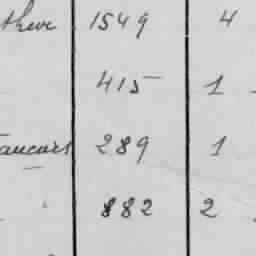 1549 4
415 1
289 1
882 2